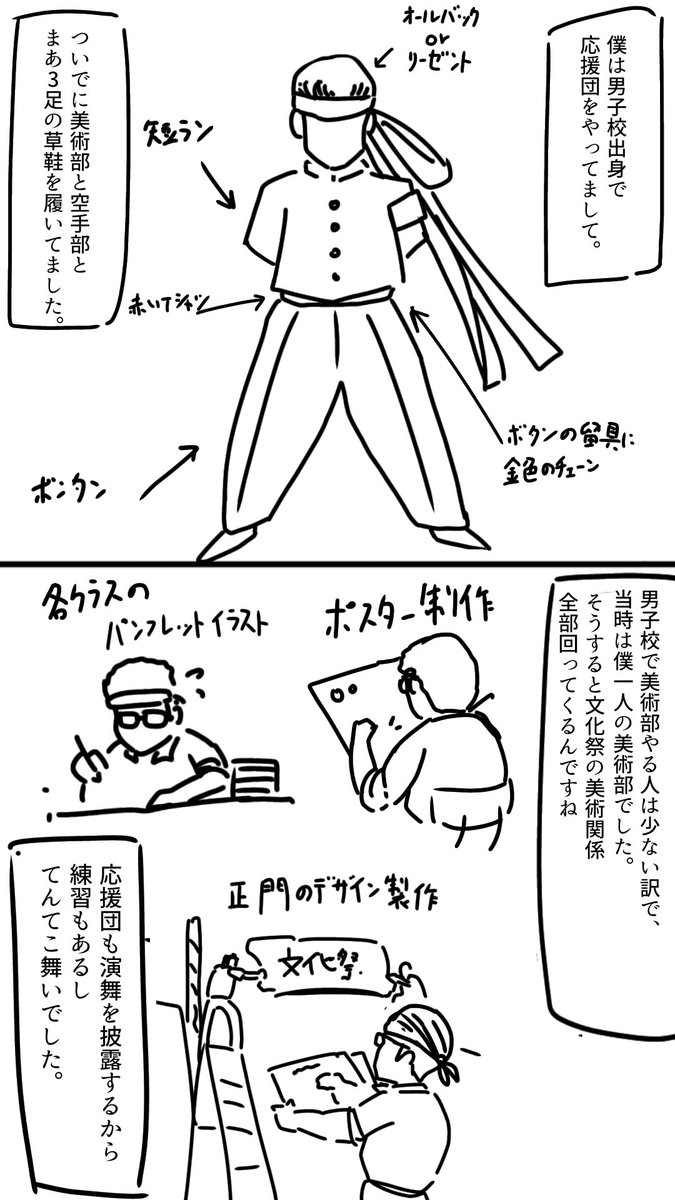 僕は男子校出身で
応援団をやってまして。
オールバック
or
リーゼント
短ラン
赤いTシャツ
ボタンの留具に
金色のチェーン
ボンタン
ついでに美術部と空手部と
まあ3足の草鞋を履いてました。
男子校で美術部やる人は少ない訳で、
当時は僕一人の美術部でした。
そうすると文化祭の美術関係
全部回ってくるんですね
ポスター制作
各クラスの
パンフレットイラスト
正門のデザイン製作
文化祭
応援団も演舞を披露するから
練習もあるし
てんてこ舞いでした。